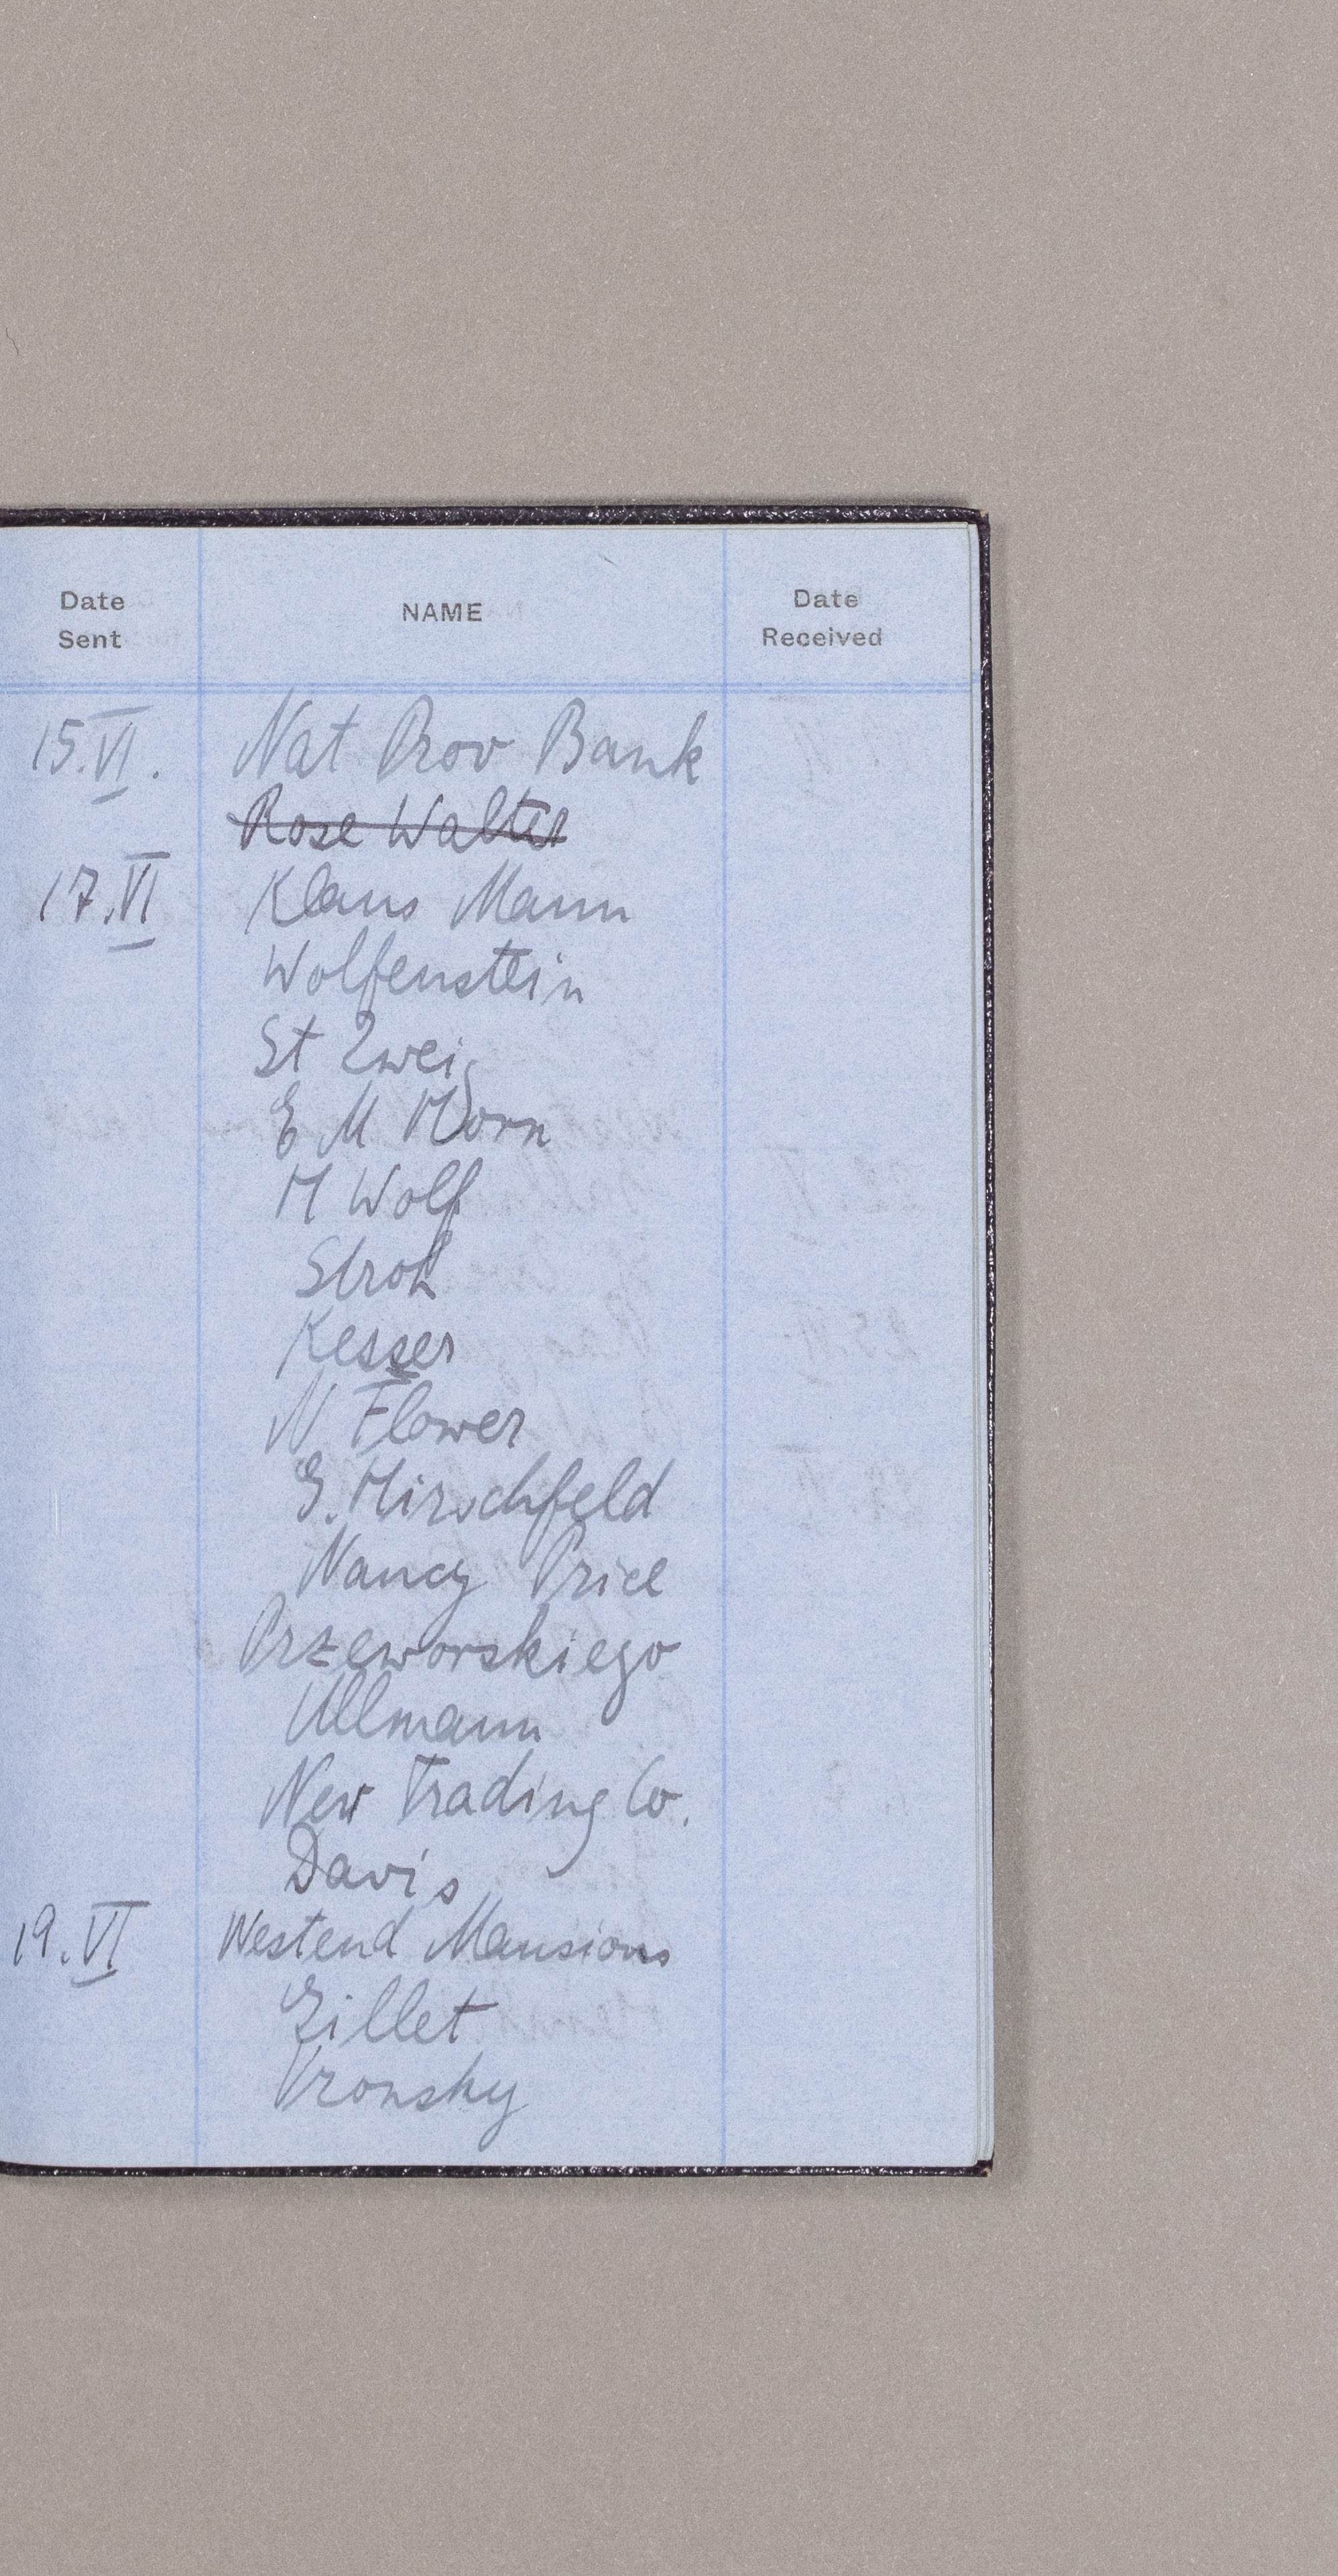 Date Sent NAME Date Received
15.VI. Nat Prov Bank
Rose Walter
17.VI Klaus Mann
Wolfenstein
St Zweig
E M Horn
H Wolf
Stroh
Kesser
N Flower
G. Hirschfeld
Nancy Price
Przeworskiego
Ullmann
New Trading Co.
Davis
19.VI Westend Mansions
Gillet
Vronsky